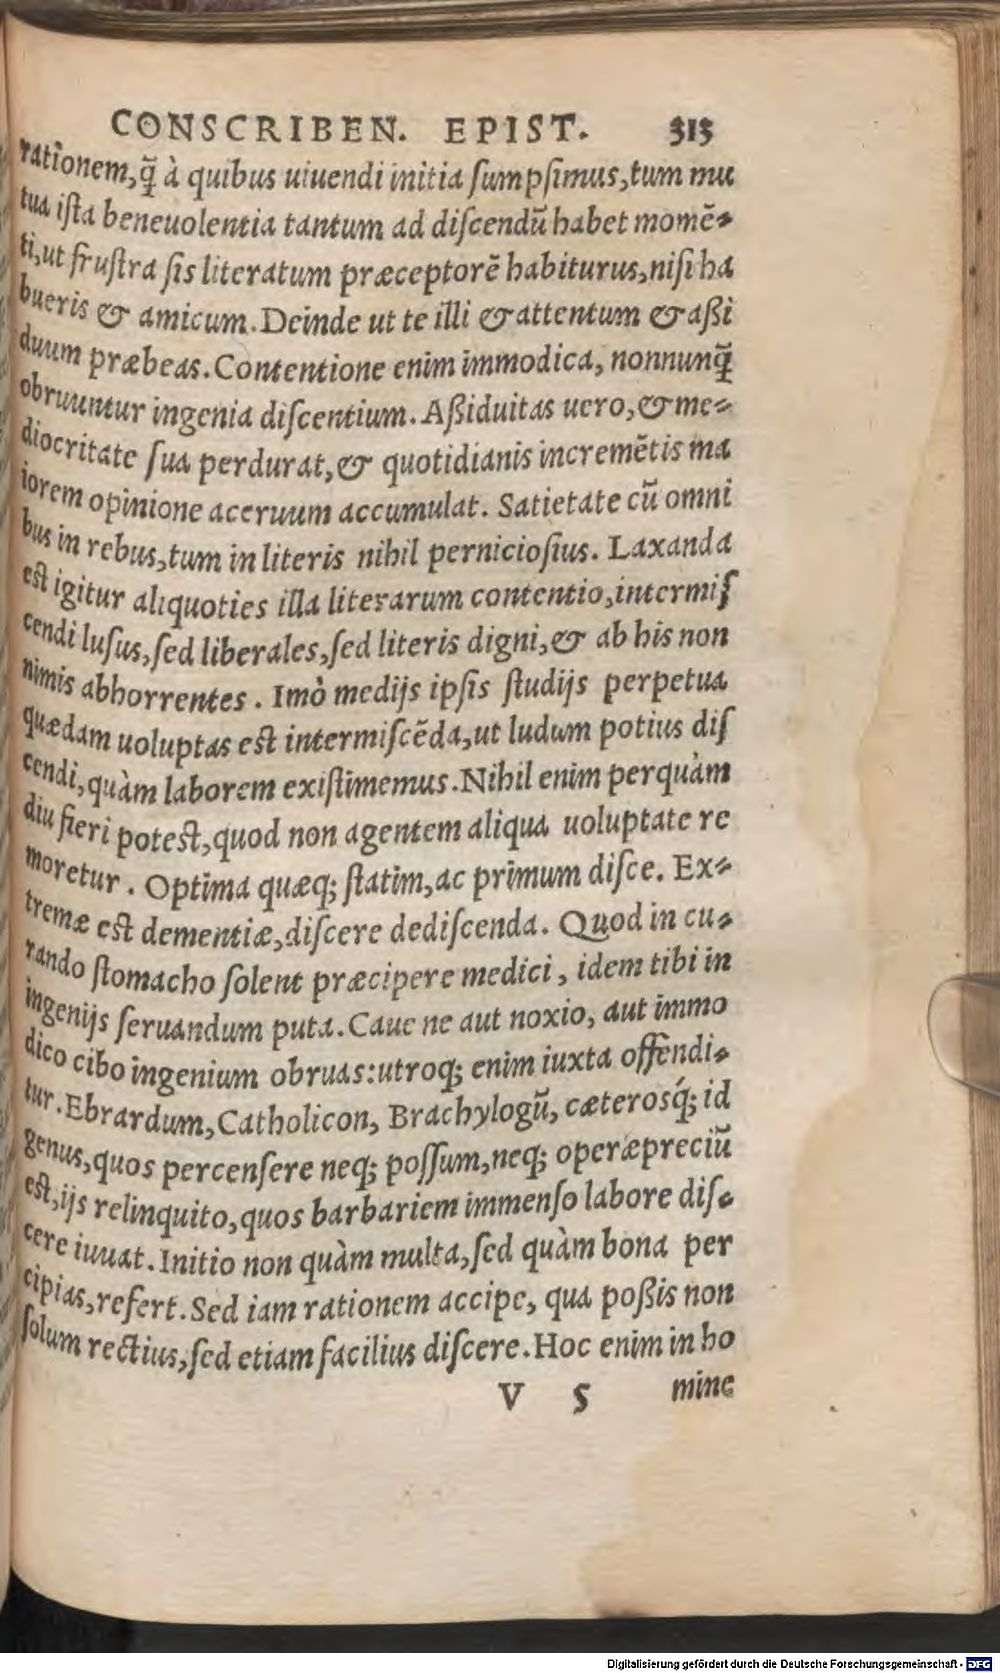 CONSCRIBEN. EPIST. 313
rationem, q̃ à quibus uiuendi initia ſumpſimus, tum mu
tua iſta beneuolentia tantum ad diſcendũ habet momẽ-
ti, ut fruſtra ſis literatum præceptorẽ habiturus, niſi ha
bueris & amicum. Deinde ut te illi & attentum & aßi
duum præbeas. Contentione enim immodica, nonnunq̃
obruuntur ingenia diſcentium. Aßiduitas uero, & me-
diocritate ſua perdurat, & quotidianis incremẽtis ma
iorem opinione aceruum accumulat. Satietate cũ omni
bus in rebus, tum in literis nihil pernicioſius. Laxanda
eſt igitur aliquoties illa literarum contentio, intermiſ
cendi luſus, ſed liberales, ſed literis digni, & ab his non
nimis abhorrentes. Imò medijs ipſis ſtudijs perpetua
quædam uoluptas eſt intermiſcẽda, ut ludum potius diſ
cendi, quàm laborem exiſtimemus. Nihil enim perquàm
diu fieri poteſt, quod non agentem aliqua uoluptate re
moretur. Optima quæq; ſtatim, ac primum diſce. Ex-
tremæ eſt dementiæ, diſcere dediſcenda. Quod in cu-
rando ſtomacho ſolent præcipere medici, idem tibi in
ingenijs ſeruandum puta. Caue ne aut noxio, aut immo
dico cibo ingenium obruas: utroq; enim iuxta offendi-
tur. Ebrardum, Catholicon, Brachylogũ, cæterosq́; id
genus, quos percenſere neq; poſſum, neq; operæpreciũ
eſt, ijs relinquito, quos barbariem immenſo labore diſ-
cere iuuat. Initio non quàm multa, ſed quàm bona per
cipias, refert. Sed iam rationem accipe, qua poßis non
ſolum rectius, ſed etiam facilius diſcere. Hoc enim in ho
V 5 mine
Digitalisierung gefördert durch die Deutsche Forschungsgemeinschaft - DFG